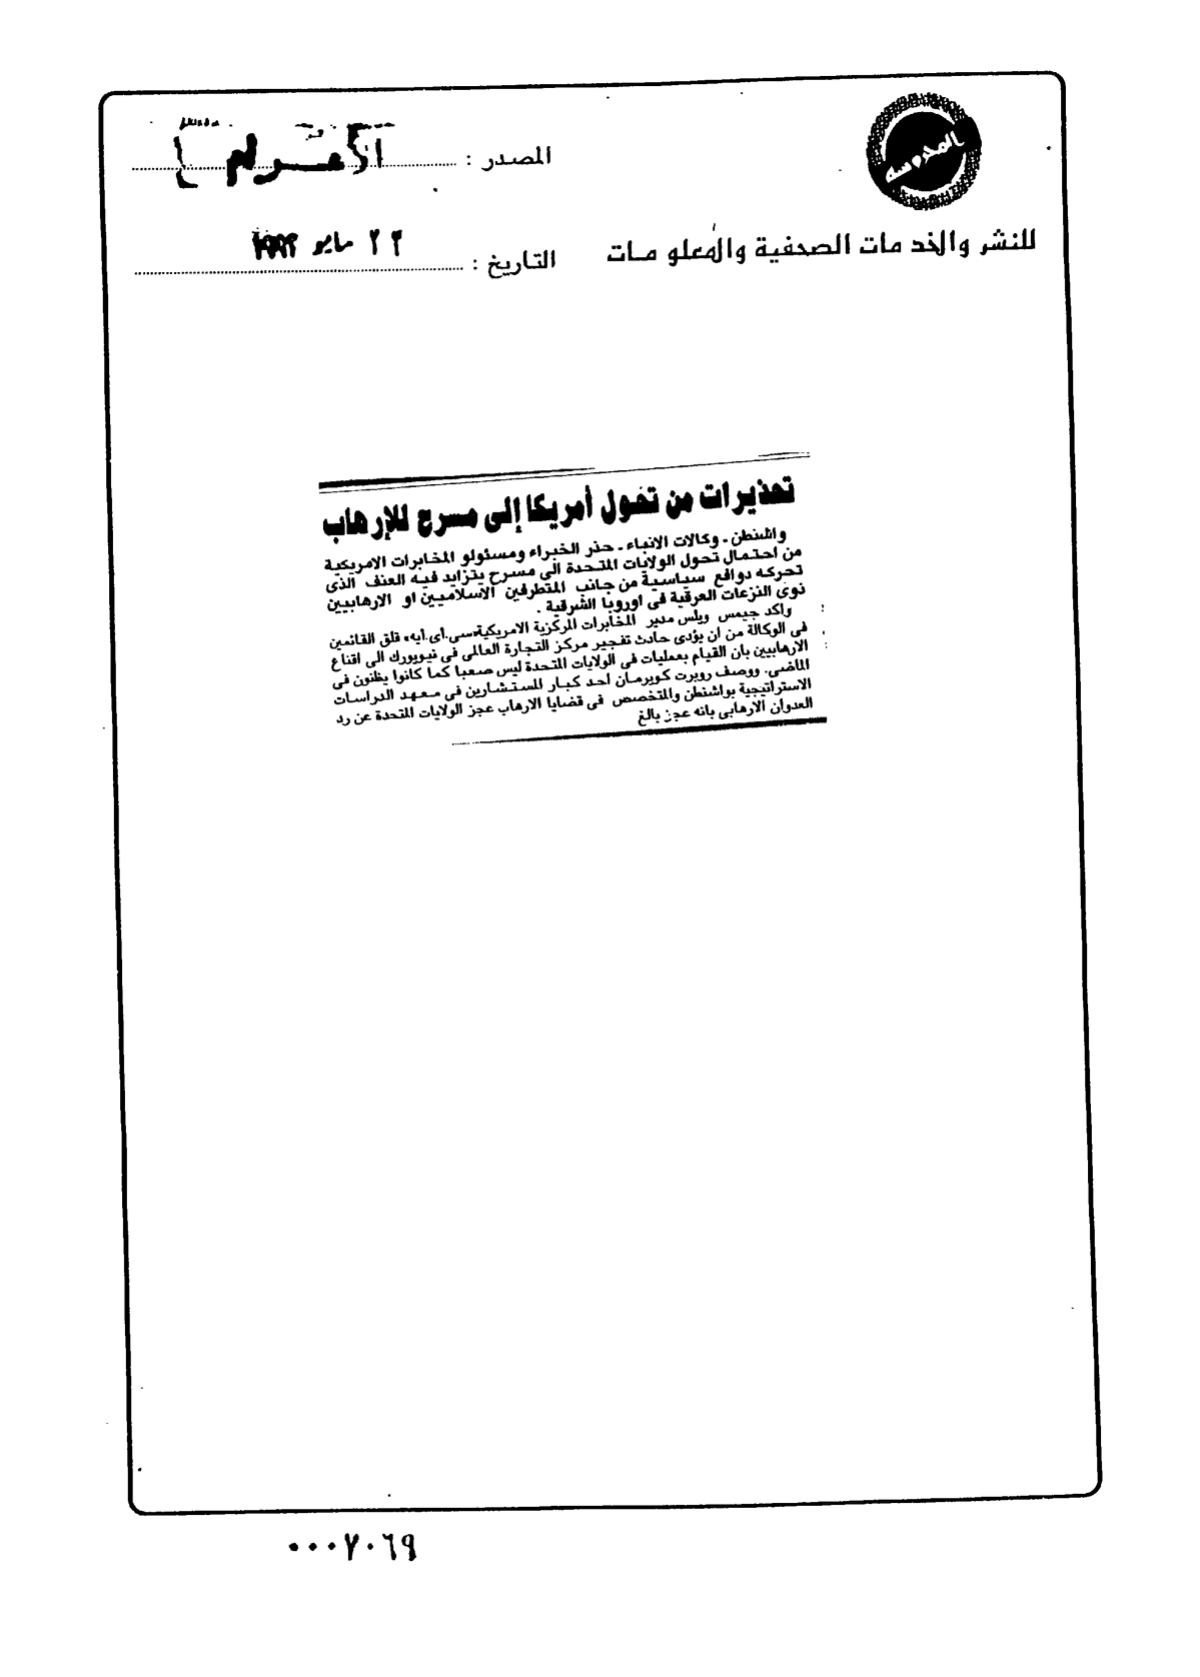 المصدر : الأهرام
المحروسة
للنشر والخدمات الصحفية والمعلومات
التاريخ : ٢٣ مايو ١٩٩٣
تحذيرات من تحول أمريكا إلى مسرح للإرهاب
واشنطن - وكالات الانباء - حذر الخبراء ومسئولو المخابرات الامريكية
من احتمال تحول الولايات المتحدة الى مسرح يتزايد فيه العنف الذى
تحركه دوافع سياسية من جانب المتطرفين الاسلاميين او الارهابيين
ذوى النزعات العرقية فى اوروبا الشرقية .
واكد جيمس ويلس مدير المخابرات المركزية الامريكية«سى.أى.ايه» قلق القائمين
فى الوكالة من ان يؤدى حادث تفجير مركز التجارة العالمى فى نيويورك الى اقناع
الارهابيين بان القيام بعمليات فى الولايات المتحدة ليس صعبا كما كانوا يظنون فى
الماضى. ووصف روبرت كويرمان احد كبار المستشارين فى معهد الدراسات
الاستراتيجية بواشنطن والمتخصص فى قضايا الارهاب عجز الولايات المتحدة عن رد
العدوان الارهابى بانه عجز بالغ
٠٠٠٧٠٦٩